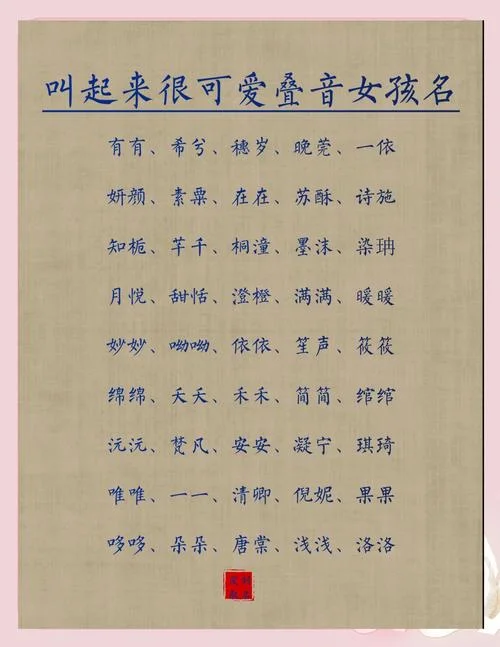 叫起来很可爱叠音女孩名
有有、希兮、穗岁、晚莞、一依
妍颜、素粟、在在、苏酥、诗施
知栀、芊千、桐潼、墨沫、染珃
月悦、甜恬、澄橙、满满、暖暖
妙妙、呦呦、依依、笙声、筱筱
绵绵、夭夭、禾禾、简简、绾绾
沅沅、梵凡、安安、凝宁、琪琦
唯唯、一一、清卿、倪妮、果果
哆哆、朵朵、唐棠、浅浅、洛洛